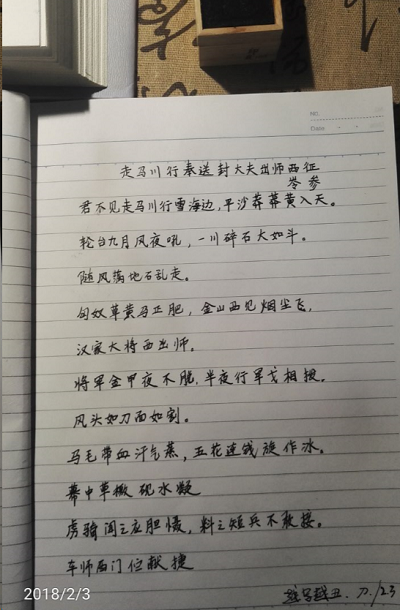 NO.
Date
走马川行奉送封大夫出师西征
岑参
君不见走马川行雪海边，平沙莽莽黄入天。
轮台九月风夜吼，一川碎石大如斗。
随风满地石乱走。
匈奴草黄马正肥，金山西见烟尘飞，
汉家大将西出师。
将军金甲夜不脱，半夜行军戈相拨。
风头如刀面如割。
马毛带血汗气蒸，五花连钱旋作冰。
幕中草檄砚水凝
虏骑闻之应胆慑，料之短兵不敢接。
车师西门伫献捷
2018/2/3